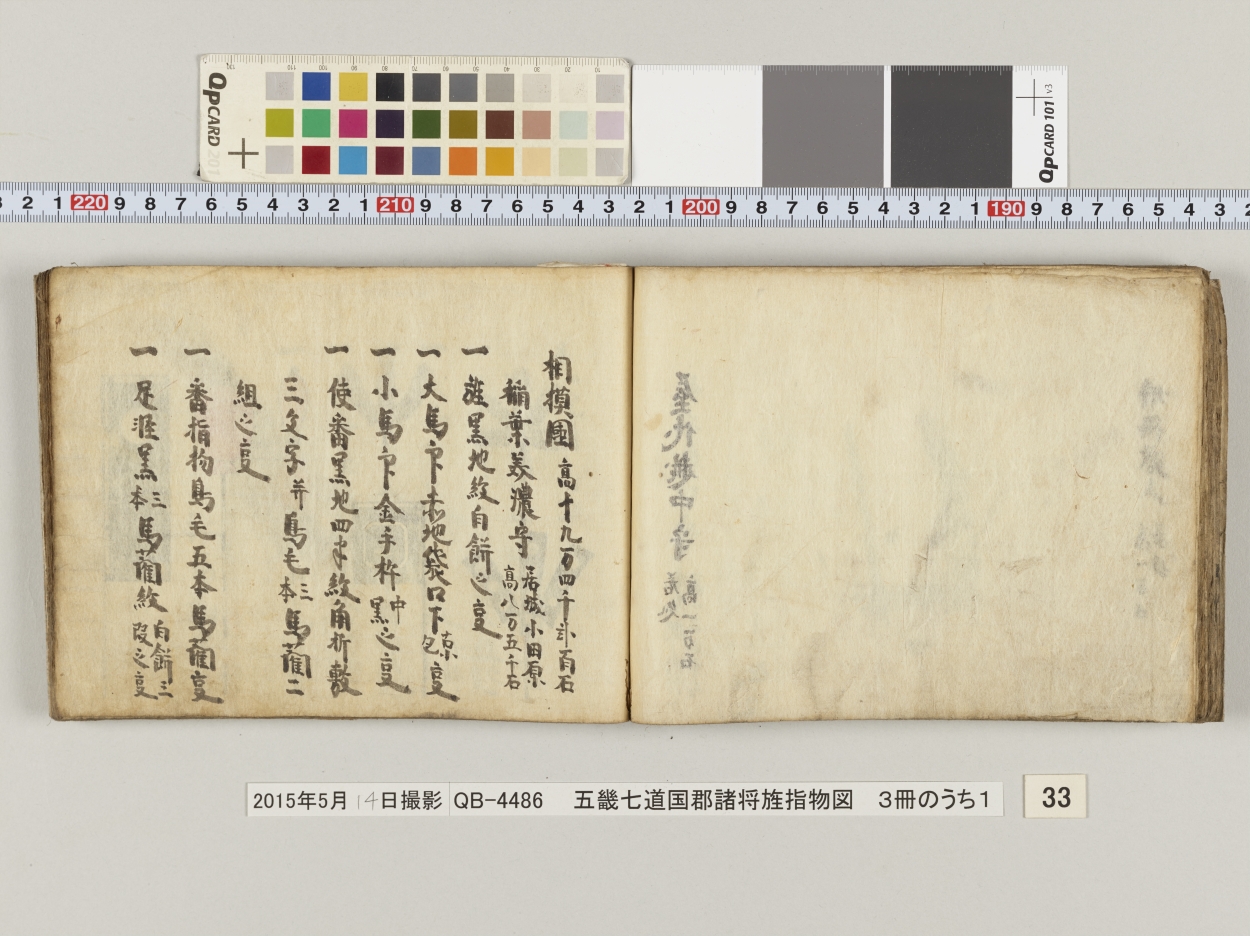 QPCARD 201
QPCARD 101 v3
3 2 1 220 9 8 7 6 5 4 3 2 1 210 9 8 7 6 5 4 3 2 1 200 9 8 7 6 5 4 3 2 1 190 9 8 7 6 5 4 3 2
屋代越中守 高一万石
相模國 高十九万四千弐百石
稲葉美濃守 居城小田原 高八万五千石
一 旌黒地紋白餅之㕝
一 大馬印赤地袋口下 㕝
一 小馬印金手杵中黒之㕝
一 使番黒地四半紋角折敷
三文字并鳥毛三本馬藺二
組之㕝
一 番指物鳥毛五本馬藺㕝
一 足涯黒三本馬藺紋白餅三段之㕝
2015年5月14日撮影 QB-4486 五畿七道国郡諸将旌指物図 3冊のうち1
33